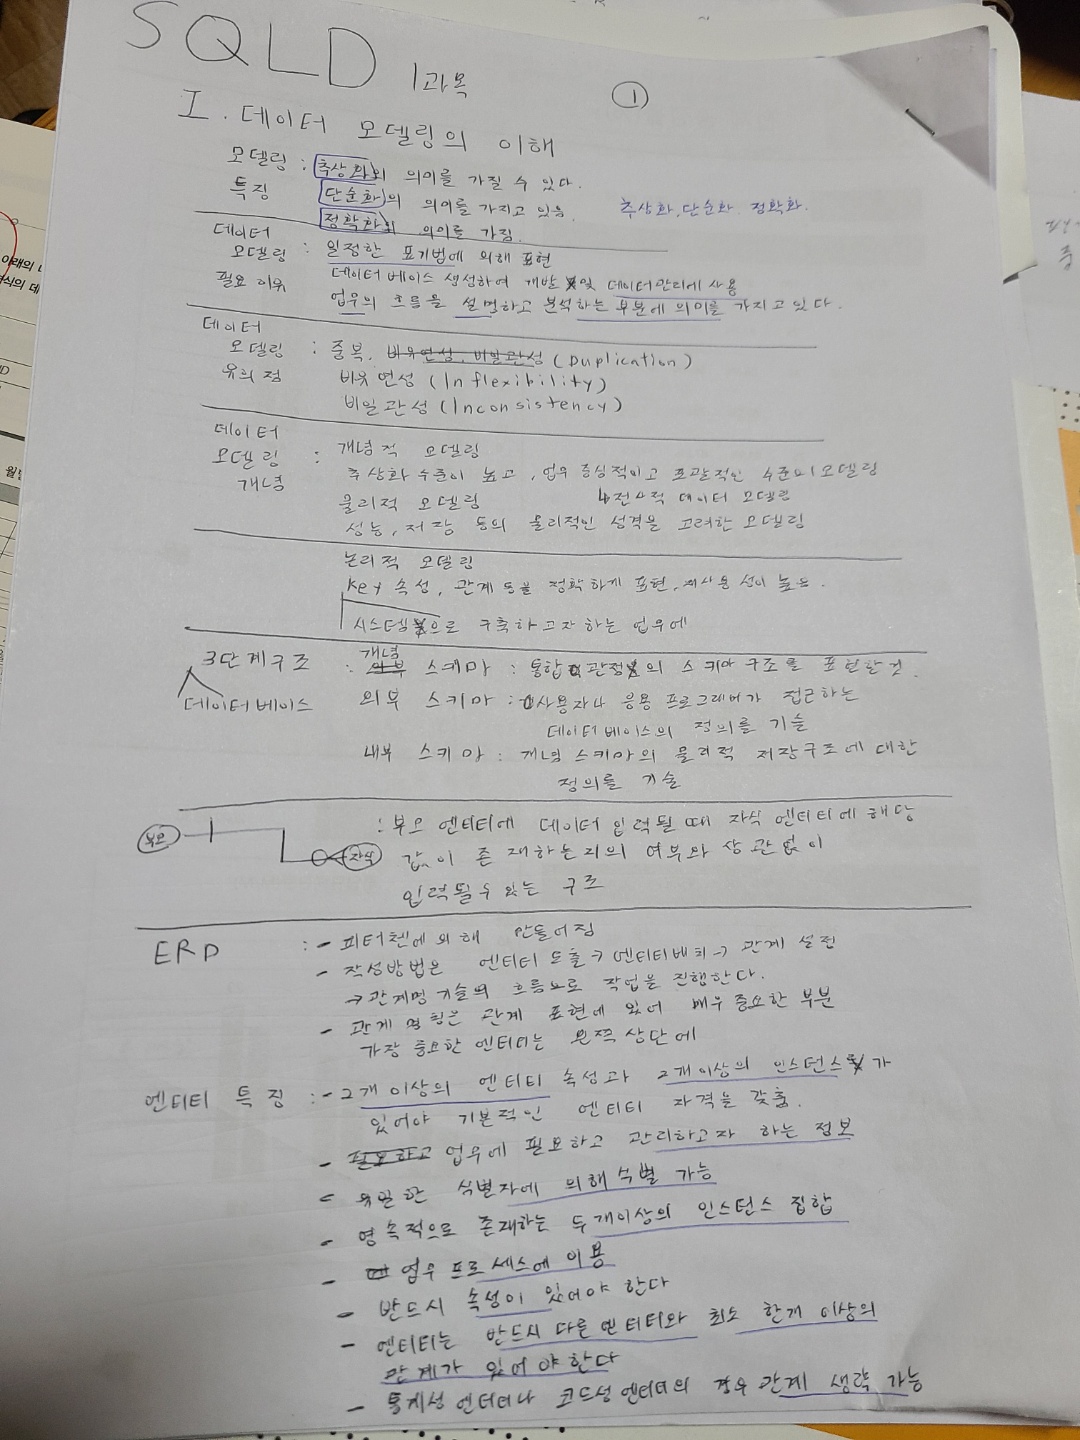 SQLD 1과목 ①
I. 데이터 모델링의 이해
모델링 : 추상화의 의미를 가질 수 있다.
특징 단순화의 의미를 가지고 있음. 추상화, 단순화 정확화.
정확화의 의미를 가짐.
데이터
모델링 : 일정한 표기법에 의해 표현
필요 이유 데이터베이스 생성하여 개발 및 데이터관리에 사용
업무의 흐름을 설명하고 분석하는 부분에 의미를 가지고 있다.
데이터
모델링 : 중복, 비유연성, 비일관성 (Duplication)
유의점 비유연성 (Inflexibility)
비일관성 (Inconsistency)
데이터
모델링 : 개념적 모델링
개념 추상화 수준이 높고, 업무 중심적이고 포괄적인 수준의 모델링
물리적 모델링 ↳전사적 데이터 모델링
성능, 저장 등의 물리적인 성격을 고려한 모델링
논리적 모델링
Key 속성, 관계 등을 정확하게 표현, 재사용성이 높음.
시스템으로 구축하고자 하는 업무에
3단계구조 : 개념 스키마 : 통합 관점의 스키마 구조를 표현한 것.
데이터베이스 외부 스키마 : 사용자나 응용 프로그래머가 접근하는
데이터베이스의 정의를 기술
내부 스키마 : 개념 스키마의 물리적 저장구조에 대한
정의를 기술
부모 자식 : 부모 엔티티에 데이터 입력될 때 자식 엔티티에 해당
값이 존재하는지의 여부와 상관없이
입력될수 있는 구조
ERD : - 피터첸에 의해 만들어짐
- 작성방법은 엔티티 도출 → 엔티티배치 → 관계 설정
→ 관계명 기술의 흐름으로 작업을 진행한다.
- 관계 명칭은 관계 표현에 있어 매우 중요한 부분
가장 중요한 엔티티는 왼쪽 상단에
엔티티 특징 : - 2개 이상의 엔티티 속성과 2개이상의 인스턴스가
있어야 기본적인 엔티티 자격을 갖춤.
- 필요하고 업무에 필요하고 관리하고자 하는 정보
- 유일한 식별자에 의해 식별 가능
- 영속적으로 존재하는 두개이상의 인스턴스 집합
- 업무 프로세스에 이용
- 반드시 속성이 있어야 한다
- 엔티티는 반드시 다른 엔티티와 최소 한개 이상의
관계가 있어야한다
- 통계성 엔티티나 코드성 엔티티의 경우 관계 생략 가능